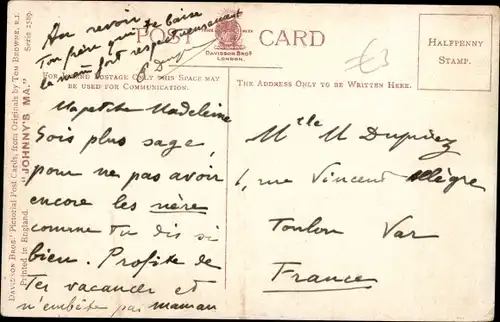 Au revoir
Ton frère qui te baise
la main fort respectueusement
POST CARD
DAVIDSON BROS
LONDON.
HALFPENNY
STAMP.
POSTAGE ONLY THIS SPACE MAY
BE USED FOR COMMUNICATION.
THE ADDRESS ONLY TO BE WRITTEN HERE.
Ma petite Madeleine
Sois plus sage,
pour ne pas avoir
encore les nère
comme tu dis si
bien. Profite de
Tes vacances et
n'embête pas maman
Mlle M Dupriez
6, rue Vincent Allègre
Toulon Var
France
DAVIDSON BROS.' Pictorial Post Cards, from Originals by TOM BROWNE, R.I.
Printed in England. "JOHNNY'S MA." Series 2589.